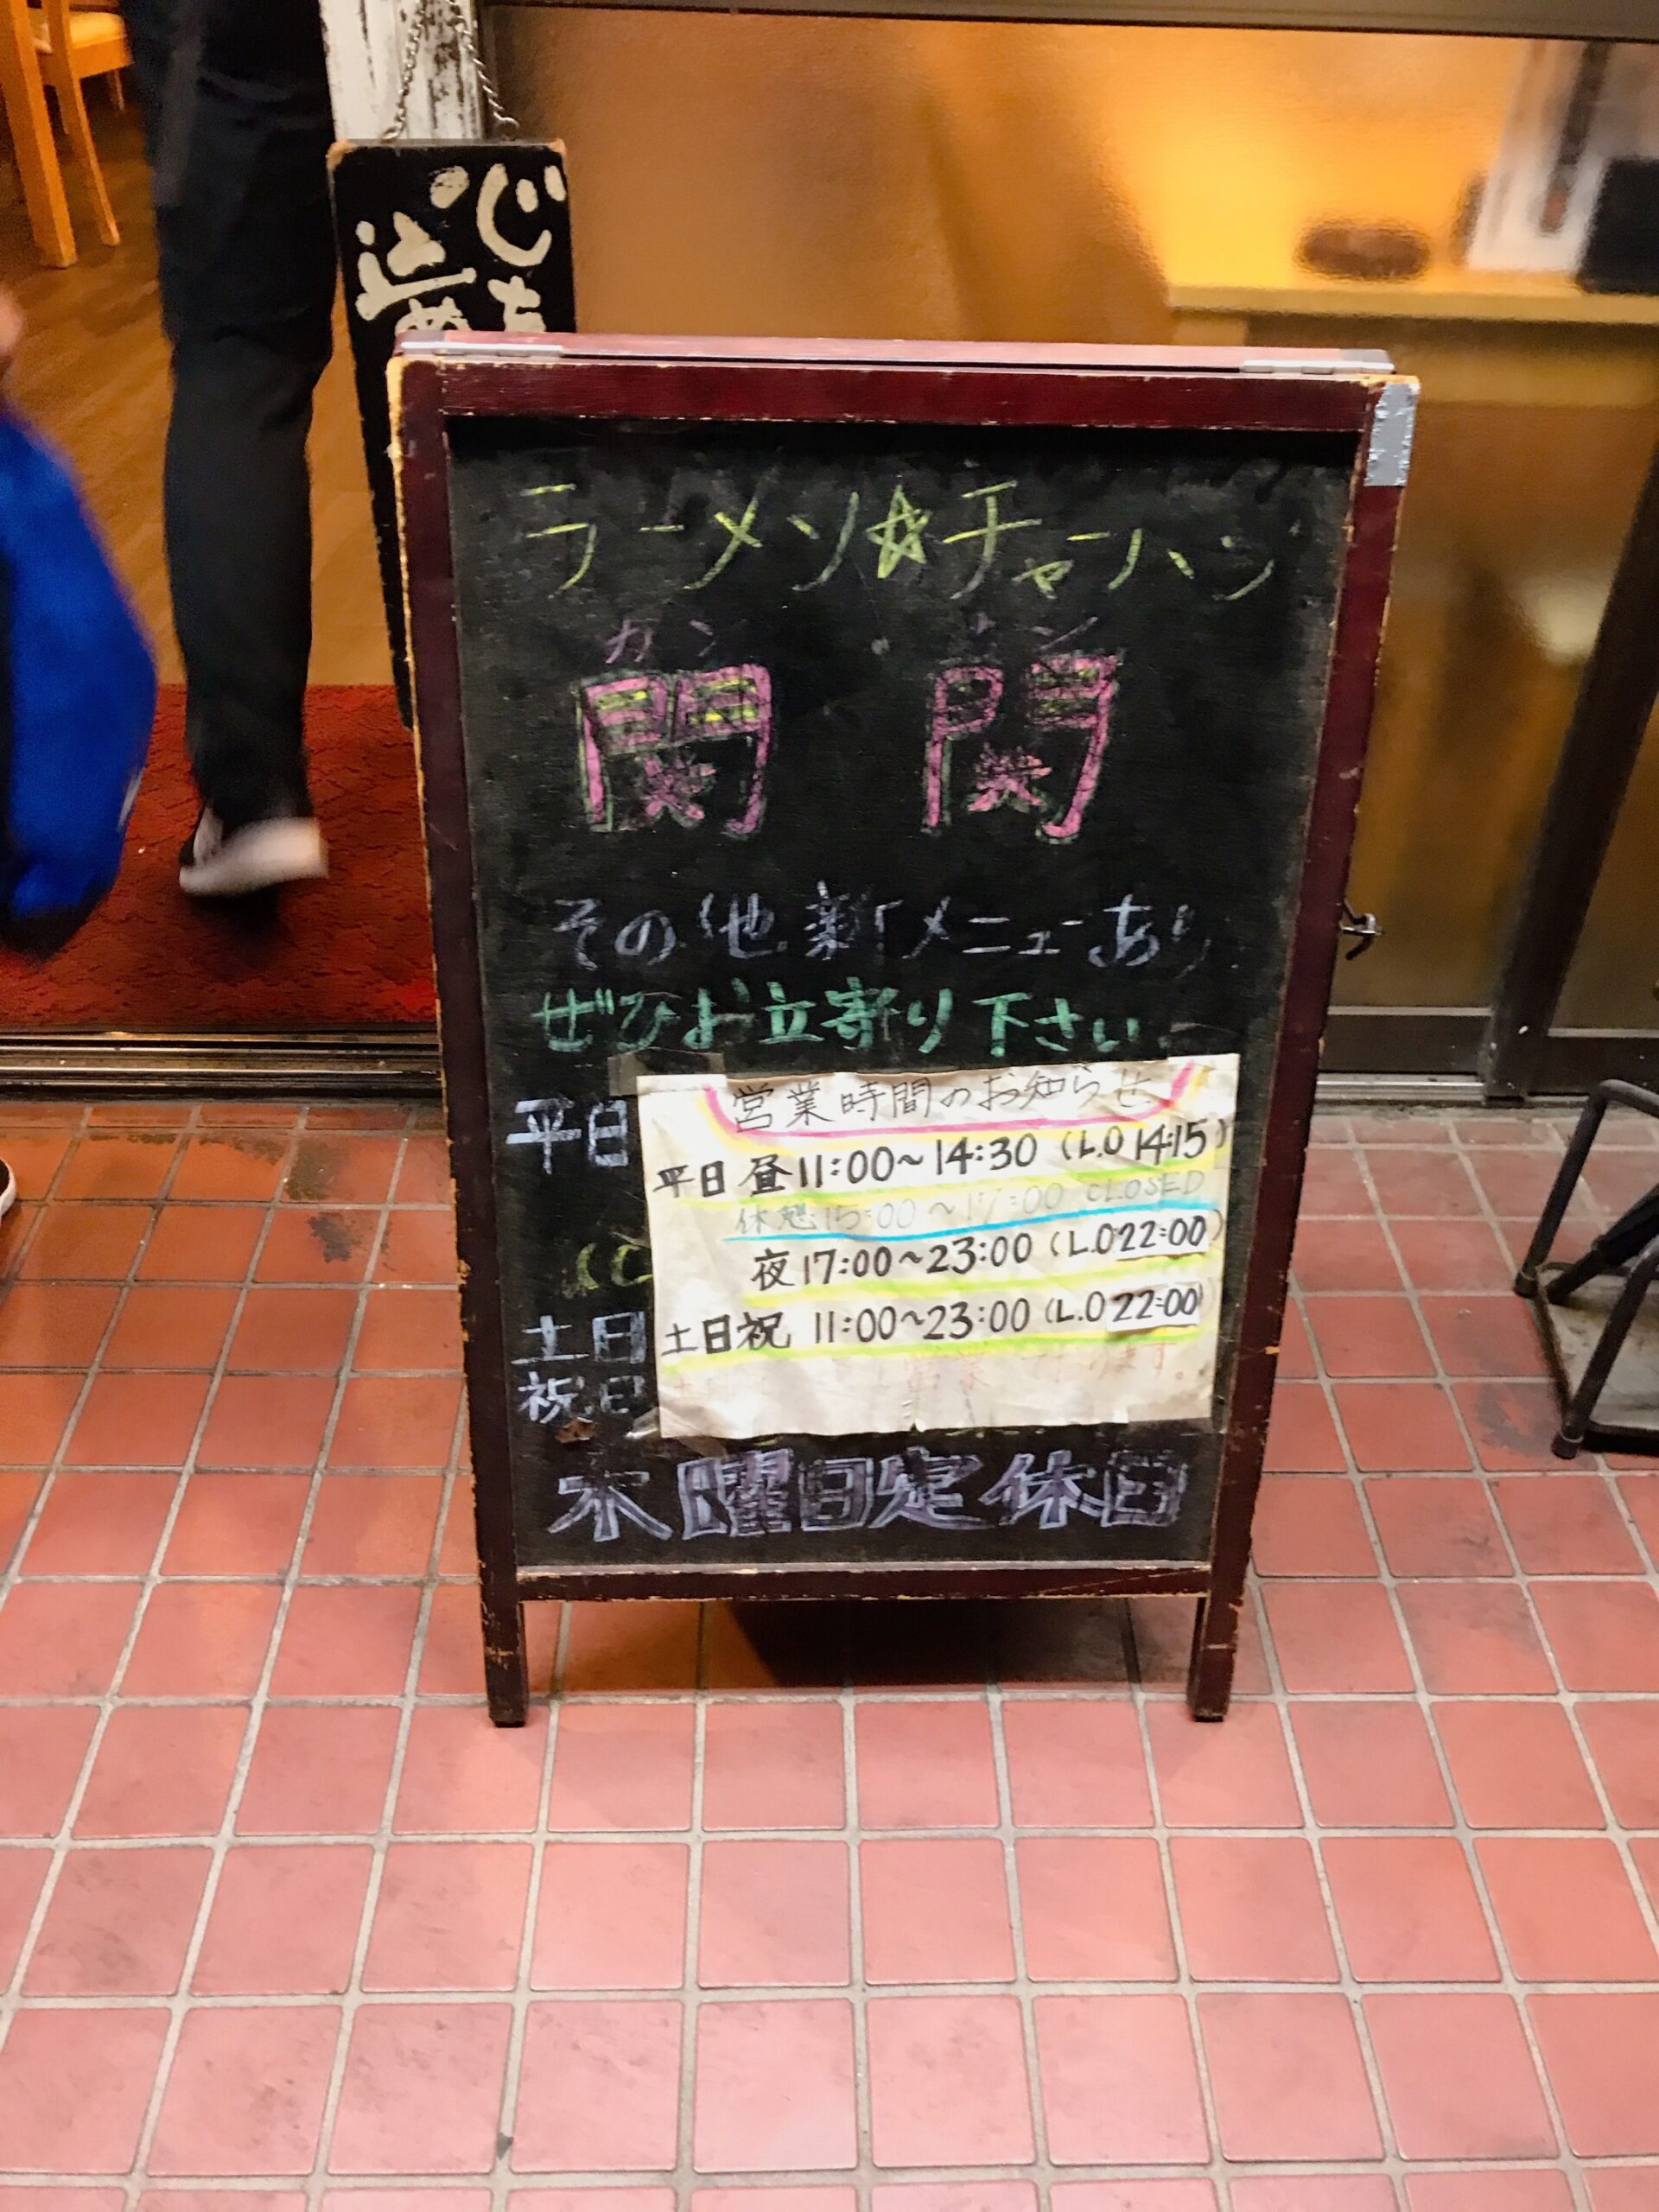 心
あ
込め
ラーメン☆チャーハン
カン カン
関 関
その他 新メニューあり
ぜひお立寄り下さい
平日
営業時間のお知らせ
平日 昼11:00〜14:30 (L.O 14:15)
休憩 15:00〜17:00 CLOSED
夜17:00〜23:00 (L.O 22:00)
土日
土日祝 11:00〜23:00 (L.O 22:00)
祝日
木曜日定休日